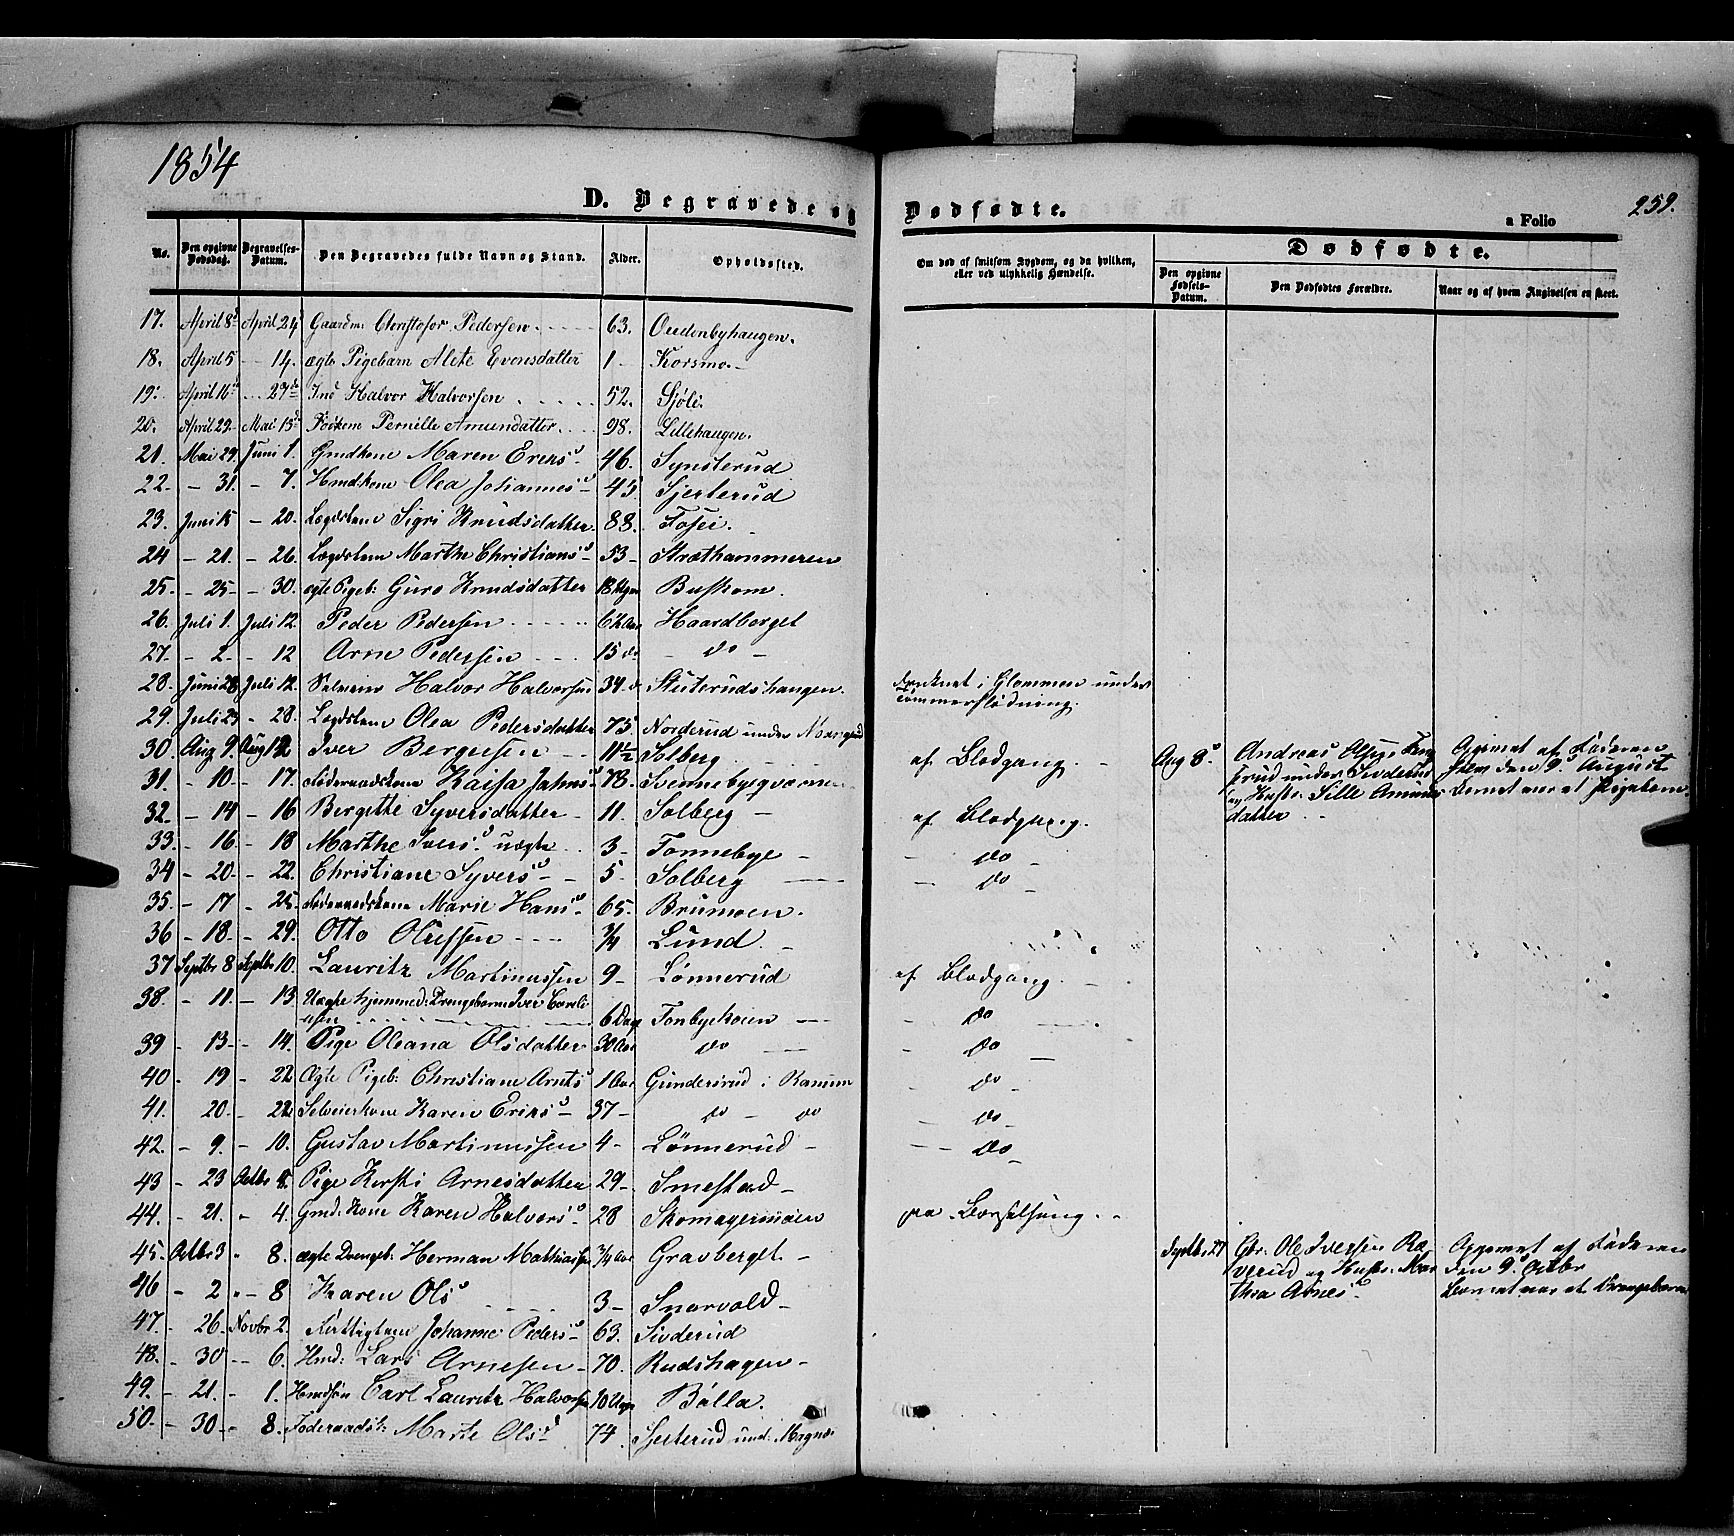 1854
D. Begravede og Dødfødte.
259.
a Folio
No. Den opgivne Dødsdag. Begravelses-Datum. Den Begravedes fulde Navn og Stand. Alder. Opholdssted. Om død af smitsom Sygdom, og da hvilken, eller ved ulykkelig Hændelse.
Dødfødte.
Den opgivne Fødsels-Datum. Den Dødfødtes Forældre. Naar og af hvem Angivelsen er skeet.
17. April 8d April 24d Gaardm: Christofer Pedersen 63. Oudenbyhaugen.
18. April 5 - 14. ægte Pigebarn Alete Evensdatter 1 - Korsmo -
19. April 16 - 27de Ind Halvor Halvorsen 52. Sjøli.
20. April 29 Mai 13d Fødkone Pernille Amundatter 98. Lillehaugen.
21. Mai 29. Juni 1. Gmdkone Maren Erersd 46. Synsterud
22. - 31. - 7. Hmd:kone Olea Johannesd 45 Sjesterud
23. Juni 15 - 20. Lægdslem Sigri Knudsdatter 88. Fosei.
24 - 21. - 26. Lægdslem Marthe Christiansd 53 - Stræthammeren
25. - 25 - - 30. ægte Pigeb: Guro Knudsdatter 18 Uger Buskom.
26. Juli 1. Juli 12. Peder Pedersen 6½ Aar Haardborget
27. - 2. - 12 Arne Pedersen 15 do - do -
28. Juni 28 Juli 12. Selveier Halvor Halvorsen 34. d. Stuterudshaugen. druknet i Glommen under
Tømmerflødning.
29. Juli 23 - 28. Lægdslem Olea Pedersdatter 75. Norderud under
30. Aug 9. Aug 12 Iver Bergersen 11½ Solberg af Blodgang. Aug 8d Andreas Olsen
31. - 10 - - 17. Føderaadskone Kaisa Jahnsd 78. Bjennebyeqværnen under
32. - 14 - 16 Bergitte Syversdatter - 11. Solberg - af Blodgang. og Hustr. Sille Amunds
datter
Opgivet af Faderen
den 9d August
Barnet var et Pigebarn.
33. - 16 - 18 Marthe Iversd uægte 3 - Tonnebye - - do -
34 - 20 - - 22. Christiane Syversd - 5. Solberg - do -
35. - 17 - 25. Føderaadskone Marie Hansd 65. Brumoen.
36 - 18. - 29. Otto Olufsen ¾ Lund. -
37 Septbr 8 Septbr 10. Lauritz Martinussen 9 - Lønnerud af Blodgang.
38. - 11. - 13. Uægte hjemmed: Drengebarn Iver Carli
usen 6 Dage Tonbyekoien - - do
39 - 13 - - 14. Pige Oleana Olsdatter 30 Aar do - - do -
40 - 19 - 22 Ægte Pigeb: Christiane Arntsd 1 Aar Gundersrud i Ranum - do -
41. 20. - 22. Selveierkone Karen Eriksd 37 - do - do - do -
42. - 9. - 10. Gustav Martinussen 4 - Lønnerud - - do -
43 - 23 Octbr 8. Pige Kersti Arnesdatter 29 - Smestad -
44. - 21. - 4. Gmd: Kone Karen Halvorsd 28 Skomagermoen paa Barselseng.
45. Octbr 3 " 8. ægte Drengeb: Herman Mathiassen ¾ Aar Gravberget - Septbr 27 Gbr. Ole Iversen Ræ
verud og Hustr. Mar
thea Arnesd
Opgivet af Faderen
den 9d Octbr
Barnet var et Drengebarn
46 - 2 " - 8 Karen Olsd 3 - Snarvold -
47. - 26. Novbr 2. Fattiglem Johanne Pedersd 63. Sivderud
48. - 30 - - 6. Hmd: Lars Arnesen 70. Rudshagen -
49. - 21. - 1. Hmdsøn Carl Lauritz Halvorsen 10 Uger Bølla.
50. - 30 - - 8. Føderaadsk: Marte Olsd 74. Sjesterud und: Magnor